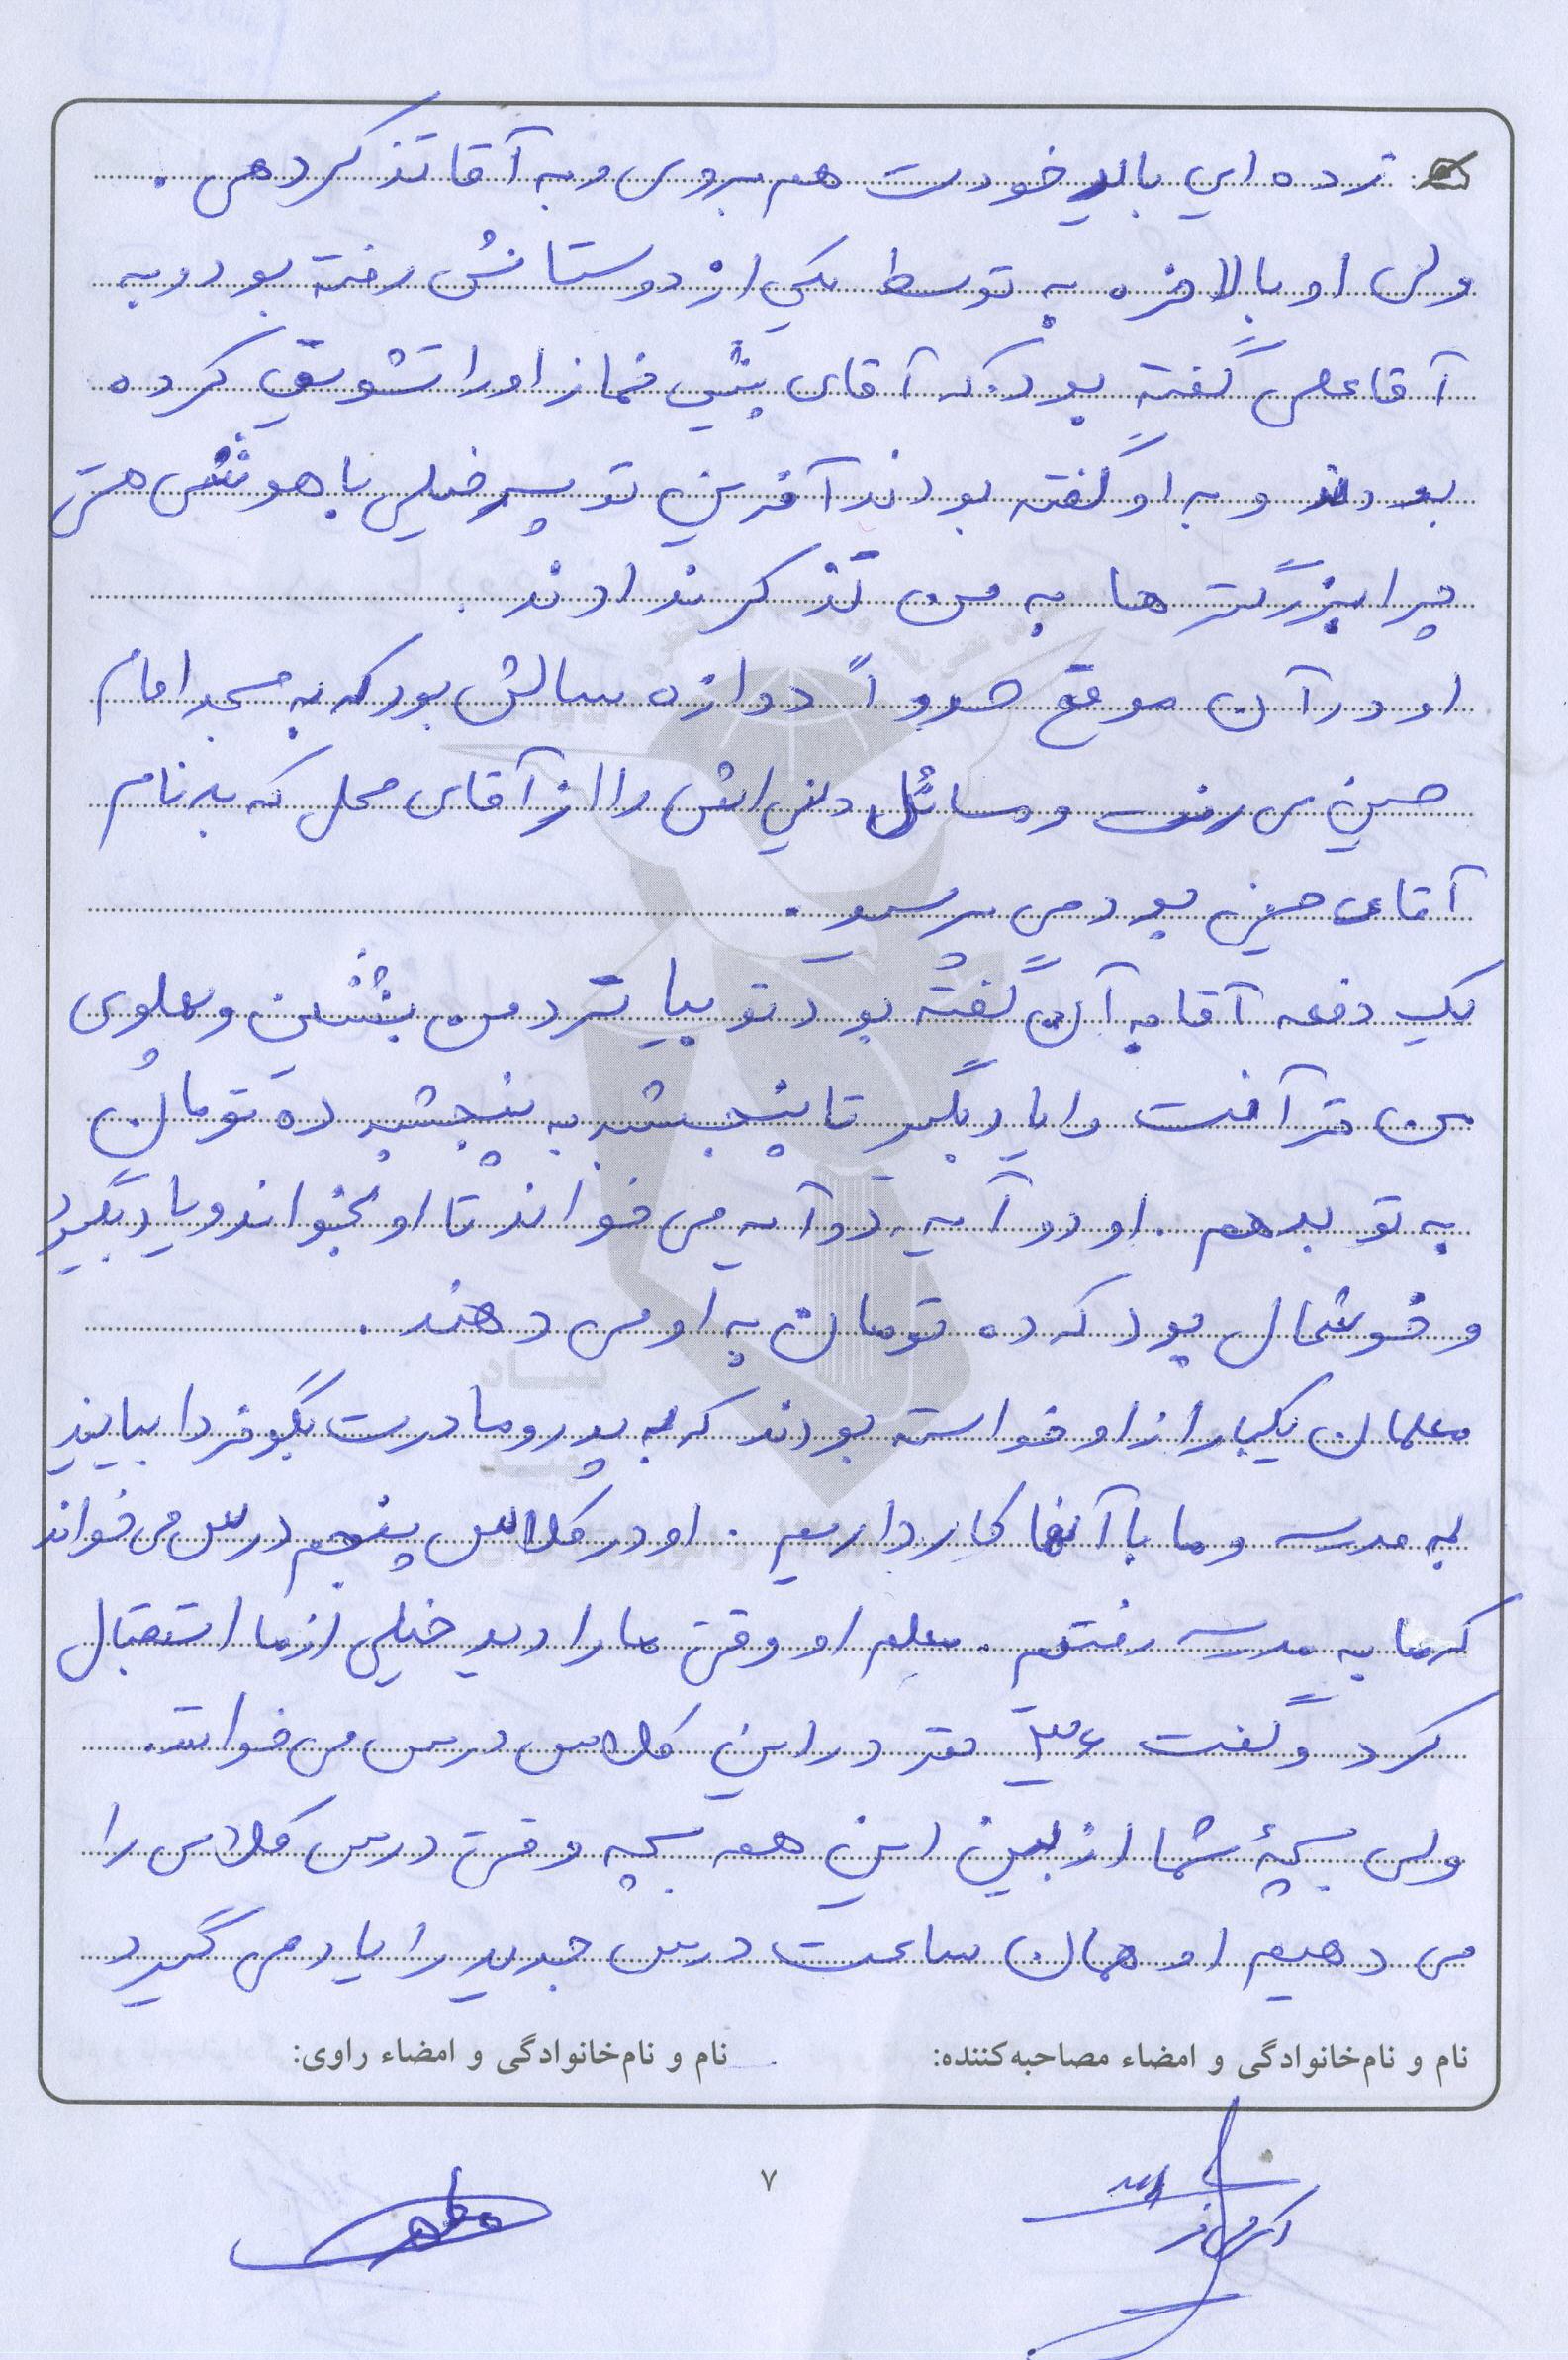 نرده ای باید خودت هم بروی و به آقا تذکر دهی .
ولی او بالاخره به توسط یکی از دوستانش رفته بود و به
آقا گفته بود که آقای پیش نماز او را تشویق کرده
بودند و به او گفته بودند آفرین تو پسر خیلی با هوش هستی
چرا بزرگترها به من تذکر ندادند .
او در آن موقع حدوداً دوازه سالش بود که به مسجد امام
حسین می رفت و مسائل دینی اش را از آقای محل که به نام
آقای حسینی بود می پرسید .
یک دفعه آقا به آن گفته بود تو بیا نزد من بنشین و پهلوی
من قرآنت را یاد بگیر تا پنجشنبه به پنجشنبه ده تومان
به تو بدهم . او دو آیه دو آیه می خواند تا او بخواند و یاد بگیرد
و خوشحال بود که ده تومان به او می دهند .
معلمان یکبار از او خواسته بودند که به پدر و مادرت بگو فردا بیایند
به مدرسه و ما با آنها کار داریم . او در کلاس پنجم درس می خواند
که ما به مدرسه رفتیم . معلم او وقتی ما را دید خیلی از ما استقبال
کرد و گفت نفر در این کلاس درس می خوانند .
ولی بچهٔ شما از بین این همه بچه وقتی درس کلاس را
می دهیم او همان ساعت درس جدید را یاد می گیرد
نام و نام‌خانوادگی و امضاء مصاحبه‌کننده: نام و نام‌خانوادگی و امضاء راوی:
۷